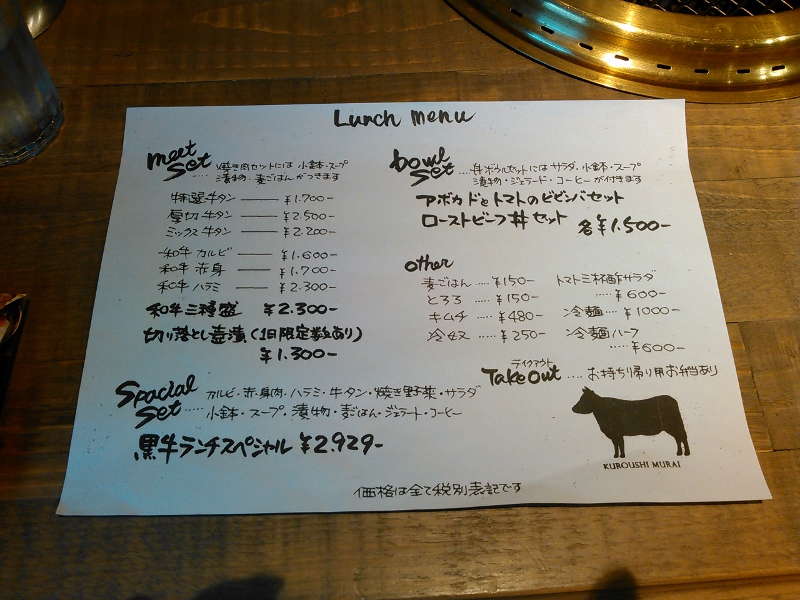 Lunch menu
meet set
焼き肉セットには 小鉢・スープ
..... 漬物・麦ごはんがつきます
特選牛タン —— ¥1.700-
厚切牛タン —— ¥2.500-
ミックス牛タン —— ¥2.200-
和牛 カルビ —— ¥1.600-
和牛 赤身 —— ¥1.700-
和牛 ハラミ —— ¥2.300-
和牛三種盛 ¥2.300-
切り落とし壺漬(1日限定数あり)
¥1.300-
bowl set
丼ボウルセットにはサラダ・小鉢・スープ
..... 漬物・ジェラード・コーヒーが付きます
アボカドとトマトのビビンバセット
ローストビーフ丼セット 各¥1.500-
other
麦ごはん ..... ¥150-
とろろ ..... ¥150-
キムチ ..... ¥480-
冷奴 ..... ¥250-
トマト三杯酢サラダ
..... ¥600-
冷麺 .... ¥1000-
冷麺ハーフ
..... ¥600-
Spacial set
カルビ・赤身肉・ハラミ・牛タン・焼き野菜・サラダ
..... 小鉢・スープ・漬物・麦ごはん・ジェラート・コーヒー
黒牛ランチスペシャル ¥2.929-
テイクアウト
Take Out .... お持ち帰り用お弁当あり
KUROUSHI MURAI
価格は全て税別表記です